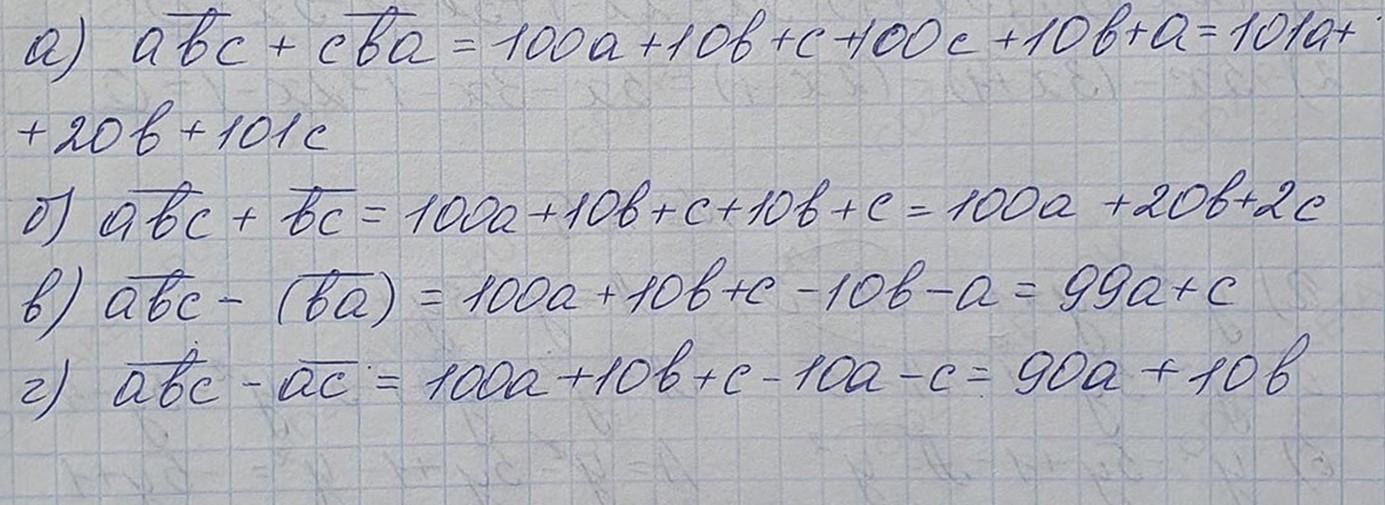 а) abc + cba = 100a+10b+c+100c+10b+a=101a+
+20b+101c
б) abc + bc = 100a+10b+c+10b+c=100a+20b+2c
в) abc - (ba) = 100a+10b+c-10b-a=99a+c
г) abc - ac = 100a+10b+c-10a-c=90a+10b